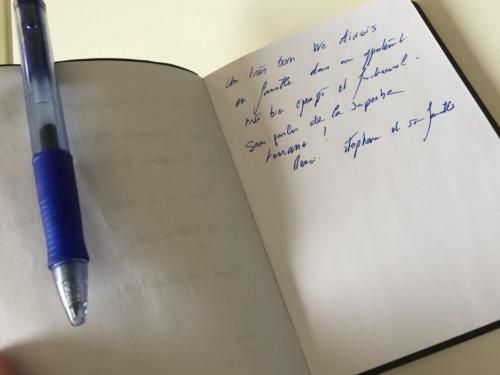 Un très bon We Aixois
en famille dans un appartement
très bien équipé et fonctionnel.
Sans parler de la superbe
terrasse !
Merci. Stéphane et sa famille